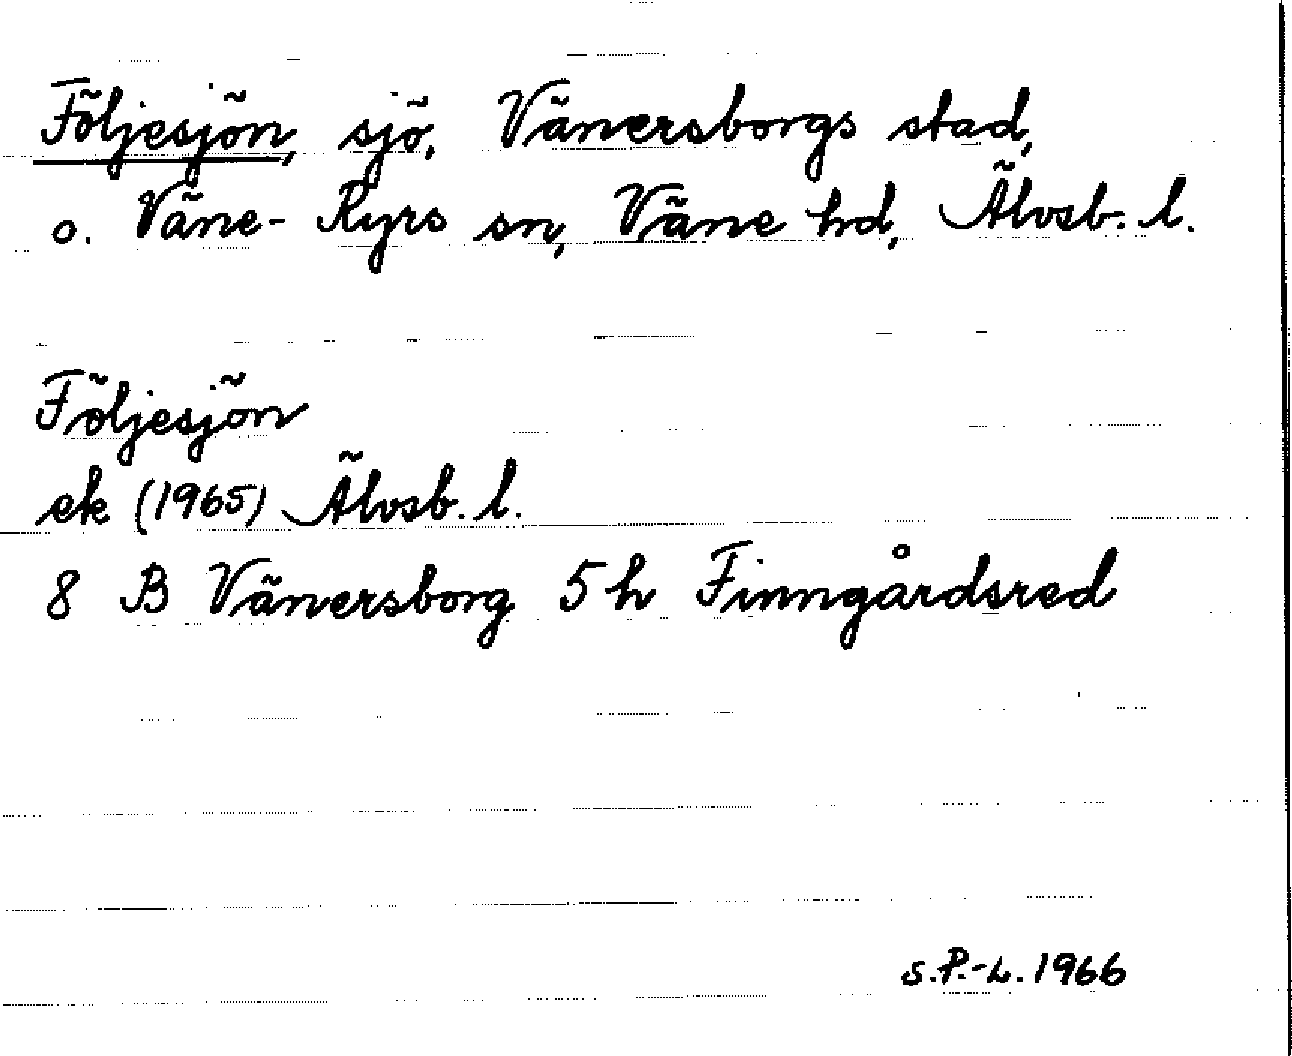 Följesjön, sjö, Vänersborgs stad,
o. Väne-Ryrs sn, Väne hd, Älvsb. l.
Följesjön
ek (1965) Älvsb. l.
8 B Vänersborg 5h Finngårdsred
S.P.-L. 1966